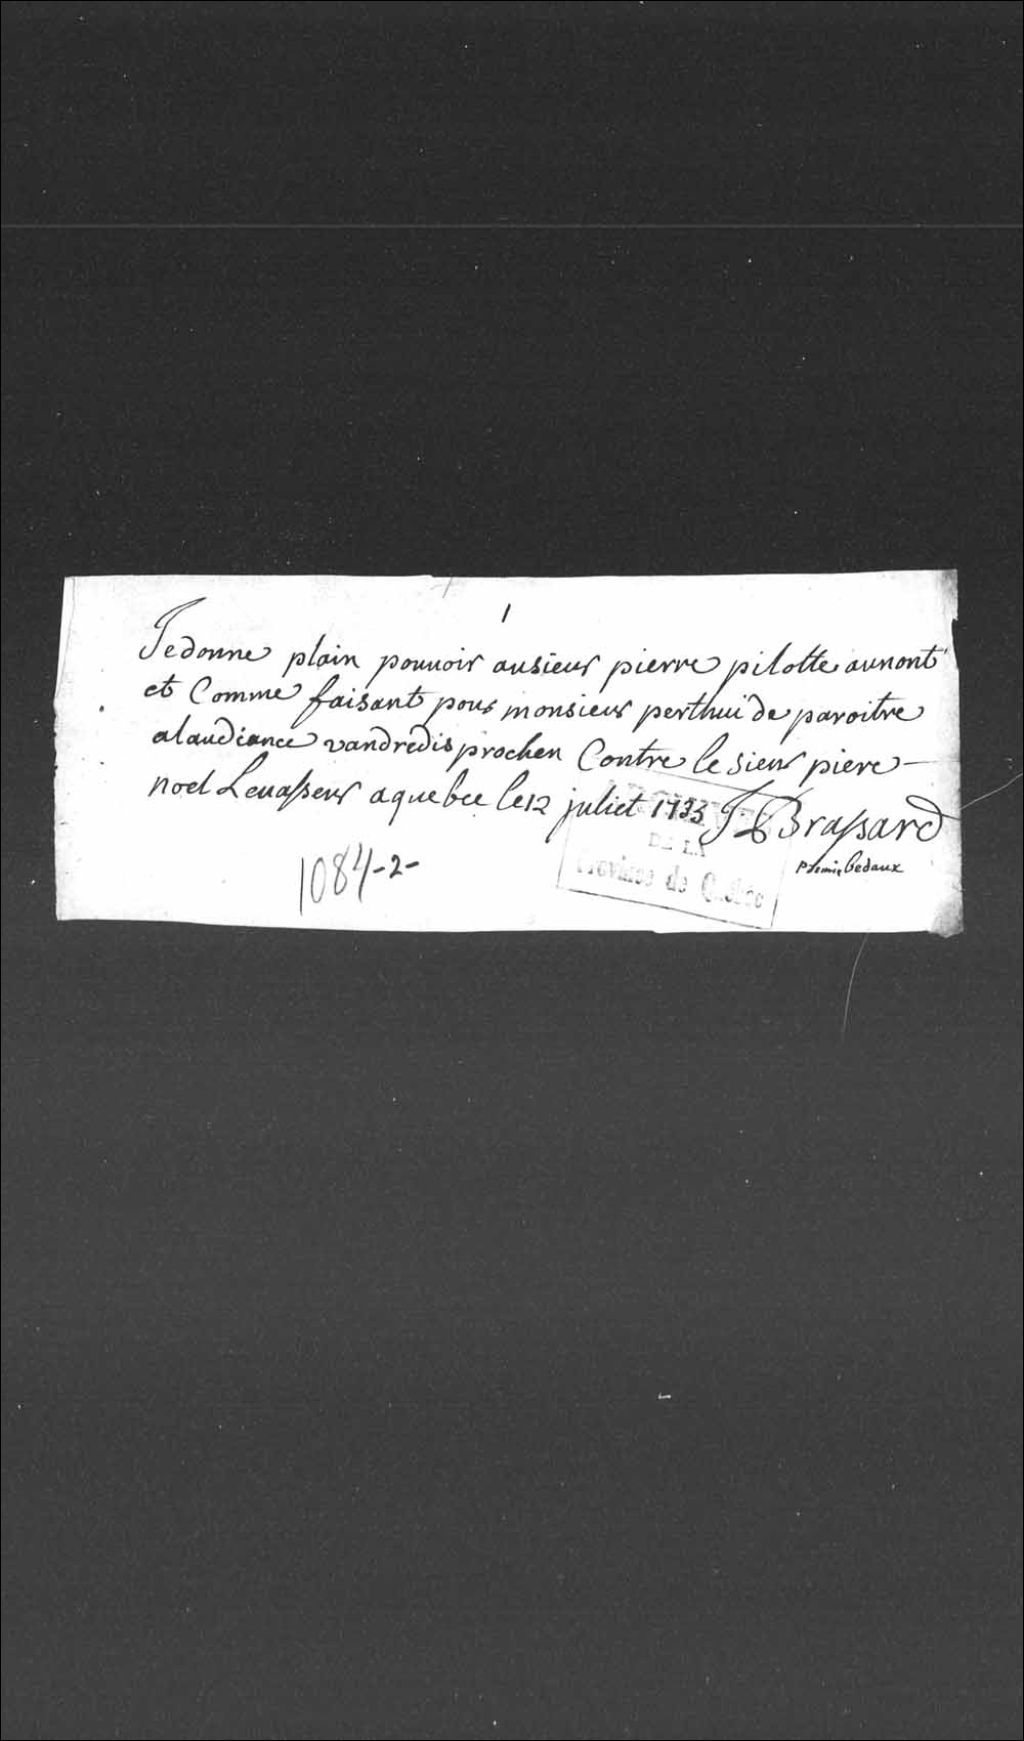 1
Je donne plain pouuoir ausieur pierre pilotte aunont
et Comme faisant pour monsieur perthui de paroitre
alaudiance vandredis prochen Contre le sieur piere
noel Leuasseur aquebec le 12 juliet 1733 J B Brassard
premie bedaux
1084-2-
DE LA
Province de Québec